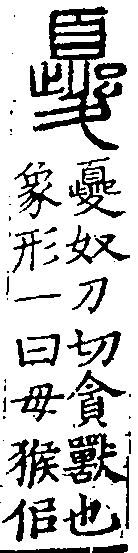 夒
夒奴刀切貪獸也
象形一曰母猴佀